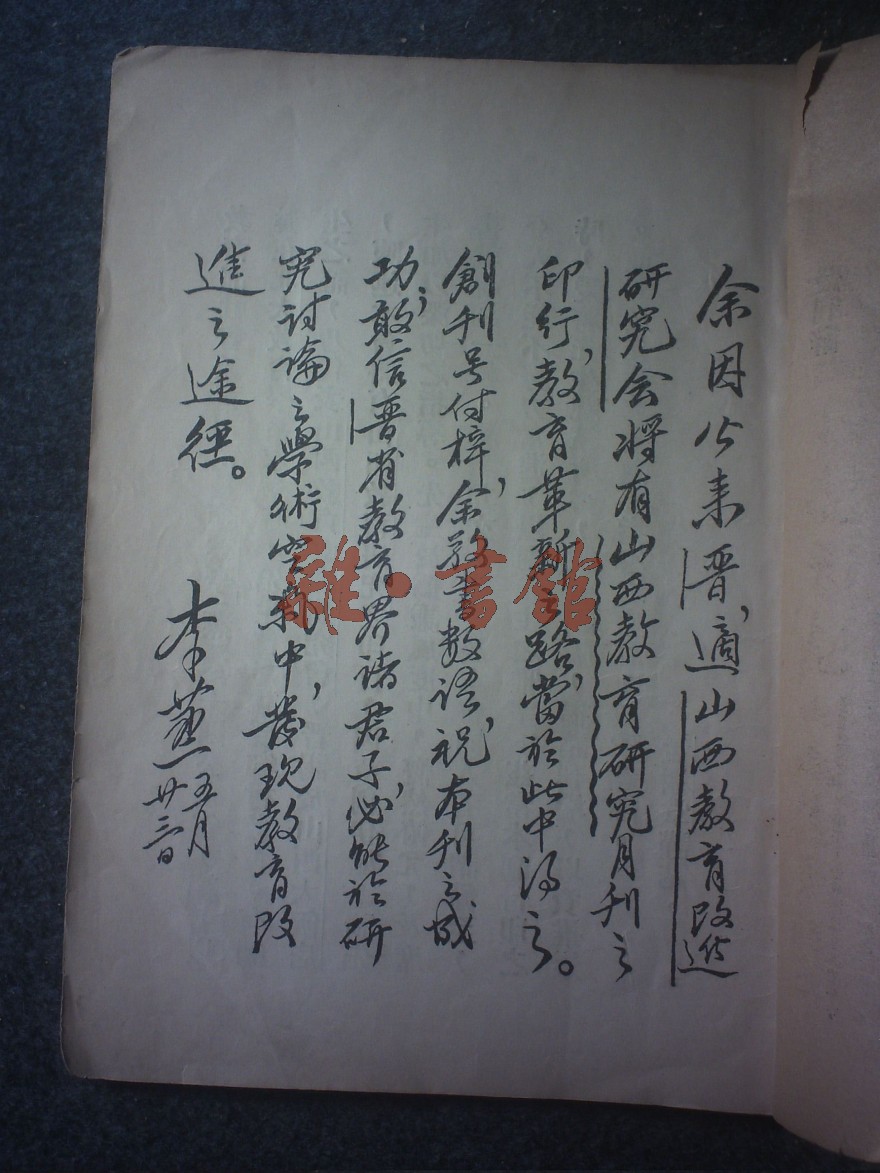 余因公来晋，適山西教育改進
研究会将有山西教育研究月刊之
印行，教育革新之路，當於此中得之。
創刊号付梓，余敬書数語，祝本刊之成
功，敢信晋省教育界诸君子，必能於研
究討論之學術空氣中，發现教育改
進之途徑。
李蒸
五月
廿三日
雜·書館